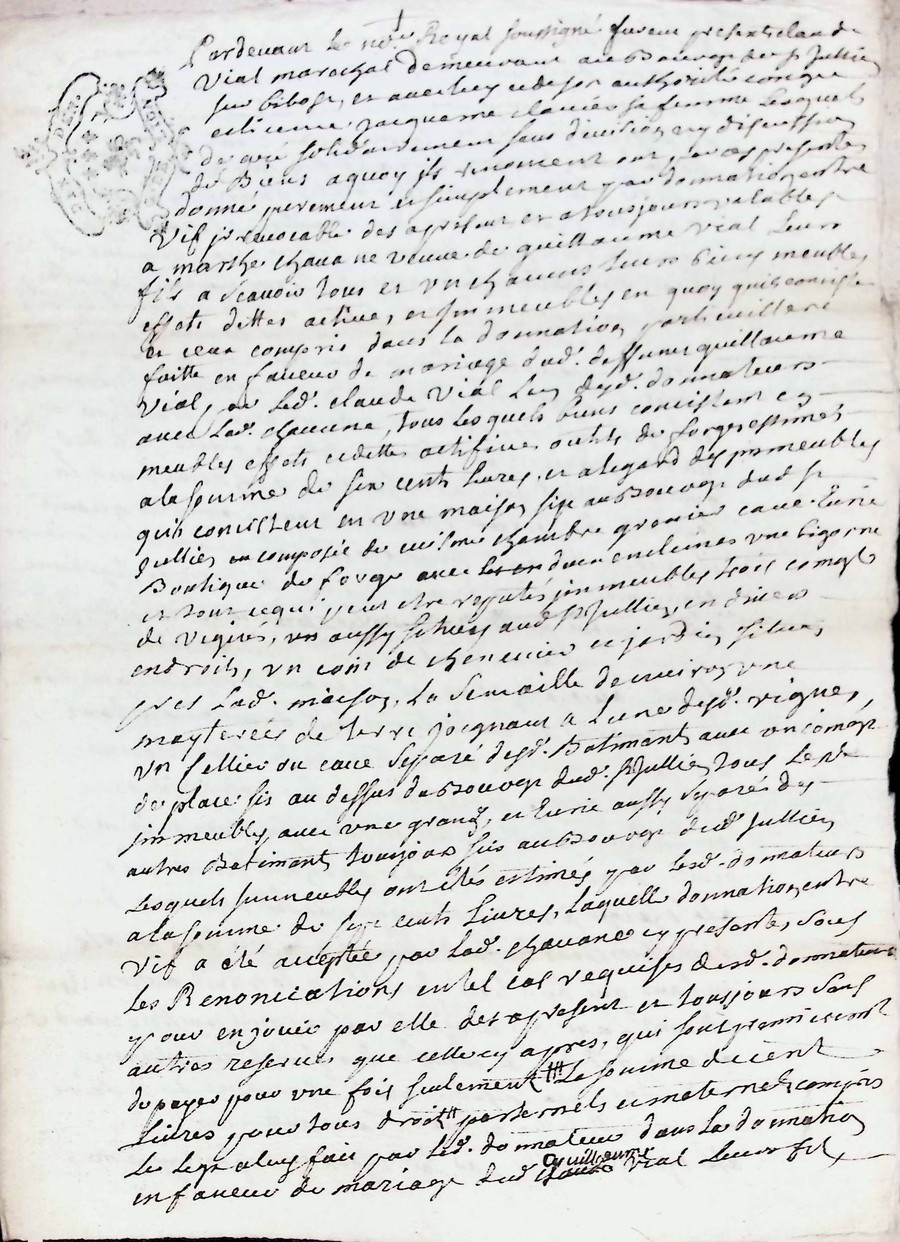 Pardevant le no.re Royal soussigné furent presents claude
Vial marechal demeurant au Bourg de St Jullien
sur bibost, et avec luy et de son authorité congé
et licence jacqueme sa femme Lesquels
de gré solidairement sans division ny discution
de Biens a quoy ils renoncent ont par ces presentes
donné purement et simplement par donnation entre
Vif irrevocable des a present et a tousjours valables
a marthe chavanne veuve de guillaume vial Leur
fils a scavoir tous et un chacuns Leurs biens meubles
effets dettes active, et immeubles en quoy quils consiste
et ceux compris dans la donnation particuliere
faitte en faveur de mariage dud. deffunt guillaume
Vial, par led. claude Vial Lun desd. donnateurs
avec Lad. chavanne, tous Lesquels biens consistent en
meubles effets et dettes actifive outils de forges estimés
a la somme de six cents livres, et a legard des immeubles
quils consistent en une maison sise au Bourg dud. st
Jullien composée de cuisine chambre grenier cave Ecurie
Boutique de forge avec deux enclumes une bigorne
et tout ce qui peut etre reputés immeubles trois
de vignes, aussy situés aud. St Jullien, en divers
endroits, un coin de chenevier et jardin situés
pres Lad. maison, La semaille denviron une
mayterées de terre joignant a Lune desd. vignes
un sellier ou cave separé desd. Batiments avec un
de place sis au dessus du Bourg dud. St Jullien tous Le
immeubles, avec une grange, et Ecurie aussy separés des
autres Batiments toujours sis au Bourg dud. st Jullien
Lesquels immeubles ont étés estimés par Lesd. donnateurs
a la somme de six cents Livres, Laquelle donnation entre
Vif a été acceptée par Lad. chavanne cy presente, sous
Les Renonciations en tel cas requises desd. donnateurs
pour en jouir par elle des a present et tousjours sans
autres reserves que celle cy apres, qui sont premierement
de payer pour une fois seulement La somme de cent
Livres pour tous droits paternels et maternels compris
Le Legs a luy fait par Led. donnateur dans La donnation
en faveur de mariage dud. guillaume Vial Leur fils,